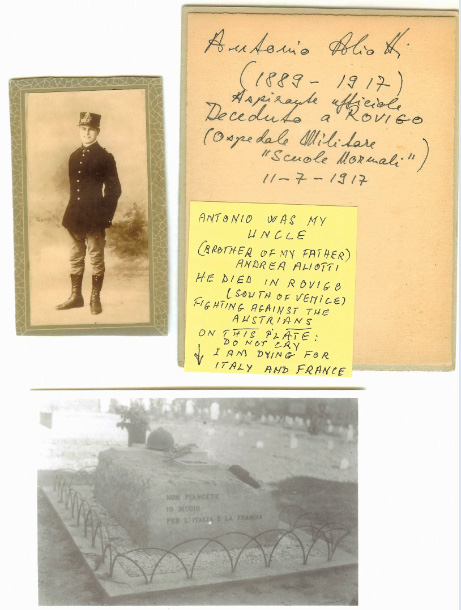 Antonio Aliotti
(1889-1917)
Aspirante ufficiale
Deceduto a ROVIGO
(Ospedale Militare
"Scuole Normali")
11-7-1917
ANTONIO WAS MY
UNCLE
(BROTHER OF MY FATHER)
ANDREA ALIOTTI
HE DIED IN ROVIGO
(SOUTH OF VENICE)
FIGHTING AGAINST THE
AUSTRIANS
ON THIS PLATE:
DO NOT CRY
↓ I AM DYING FOR
ITALY AND FRANCE
NON PIANGETE
IO MUOIO
PER L'ITALIA E LA FRANCIA